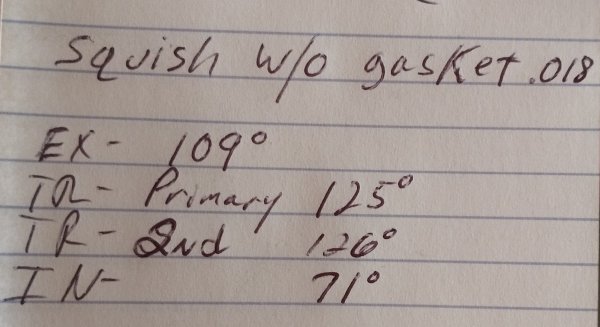 Squish w/o gasket .018
EX- 109°
TR- Primary 125°
TR- 2nd 126°
IN- 71°